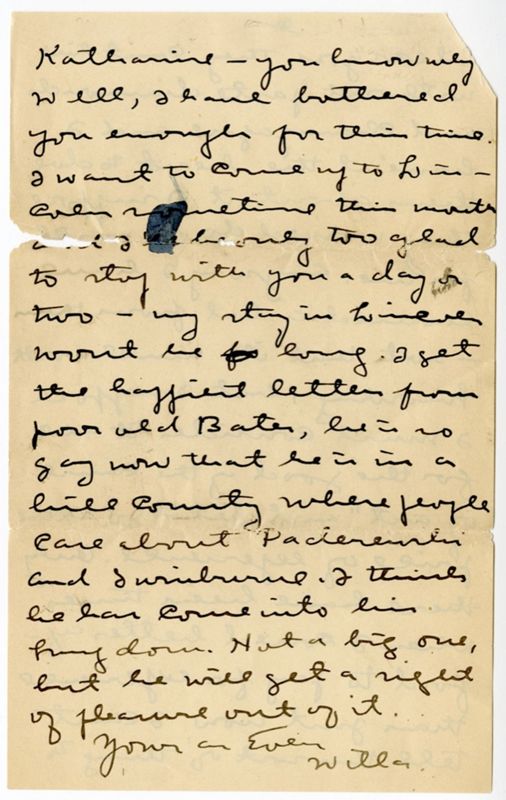 Katharine - you know very
well, I have bothered
you enough for this time.
I want to come up to Lin-
coln sometime this month
and I be only too glad
to stay with you a day or
two - my stay in Lincoln
wont be long. I get
the happiest letters from
poor old Bates, he is so
gay now that he is in a
hill country where people
care about Paderewski
and Swinburne. I think
he has come into his
kingdom. Not a big one,
but he will get a right
of pleasure out of it.
Yours as Ever
Willa.